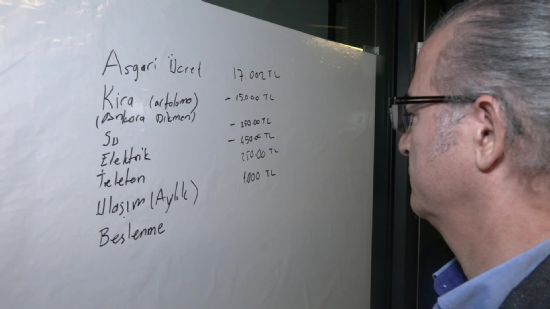 Asgari Ücret 17.002 TL
Kira (ortalama) - 15.000 TL
(Ankara Dikmen)
Su - 250.00 TL
Elektrik - 450.00 TL
Telefon 250.00 TL
Ulaşım (Aylık) 1000 TL
Beslenme